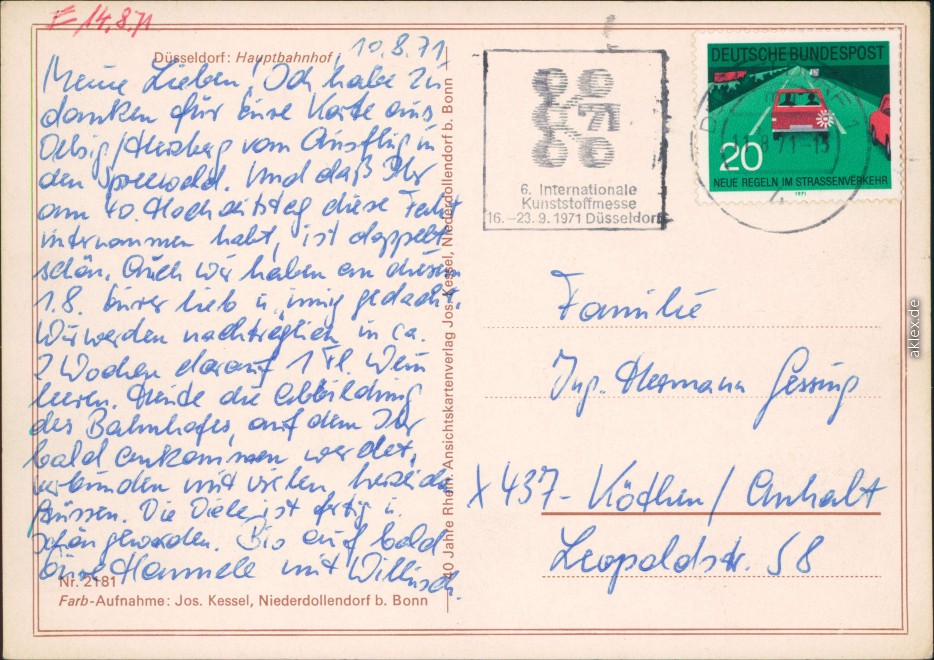 E 14.8.71
Düsseldorf: Hauptbahnhof
10.8.71
Meine Lieben! Ich habe zu
danken für Eure Karte aus
/Herzberg vom Ausflug in
den Spreewald. Und daß Ihr
am 40. Hochzeitstag diese Fahrt
unternommen habt, ist doppelt
schön. Auch wir haben an diesem
1.8. Eurer lieb u. innig gedacht.
Wir werden nachträglich in ca.
2 Wochen darauf 1 Fl. Wein
leeren. Heute die Abbildung
des Bahnhofes, auf dem Ihr
bald ankommen werdet,
verbunden mit vielen, herzlichen
Grüssen. Die Diele ist fertig u.
schön geworden. Bis auf bald
Eure Hannele mit Willusch.
Nr. 2181
Farb-Aufnahme: Jos. Kessel, Niederdollendorf b. Bonn
40 Jahre Rhein. Ansichtskartenverlag Jos. Kessel, Niederdollendorf b. Bonn
'71
6. Internationale
Kunststoffmesse
16.–23.9.1971 Düsseldorf
DEUTSCHE BUNDESPOST
20
NEUE REGELN IM STRASSENVERKEHR
1971
8.71-13
Familie
Ing. Hermann Gessing
X 437 - Köthen / Anhalt
Leopoldstr. 58
aklex.de